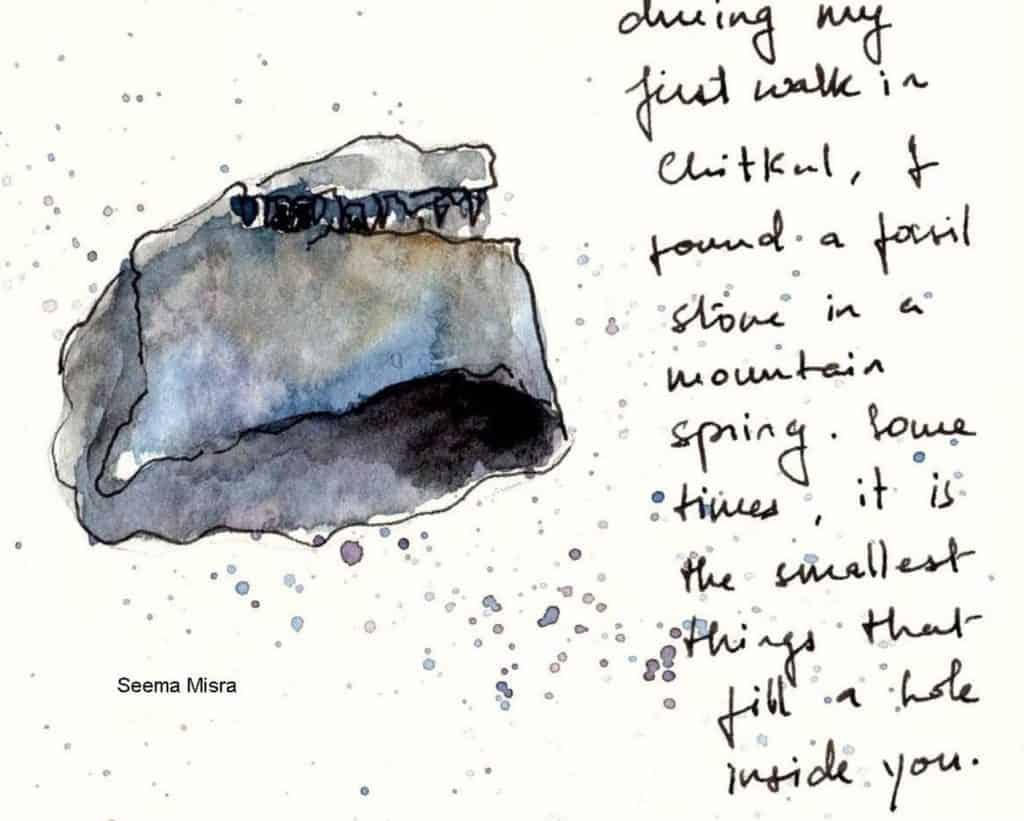 during my
first walk in
Chitkul, I
found a fossil
stone in a
mountain
spring. Some
times, it is
the smallest
things that
fill a hole
inside you.
Seema Misra